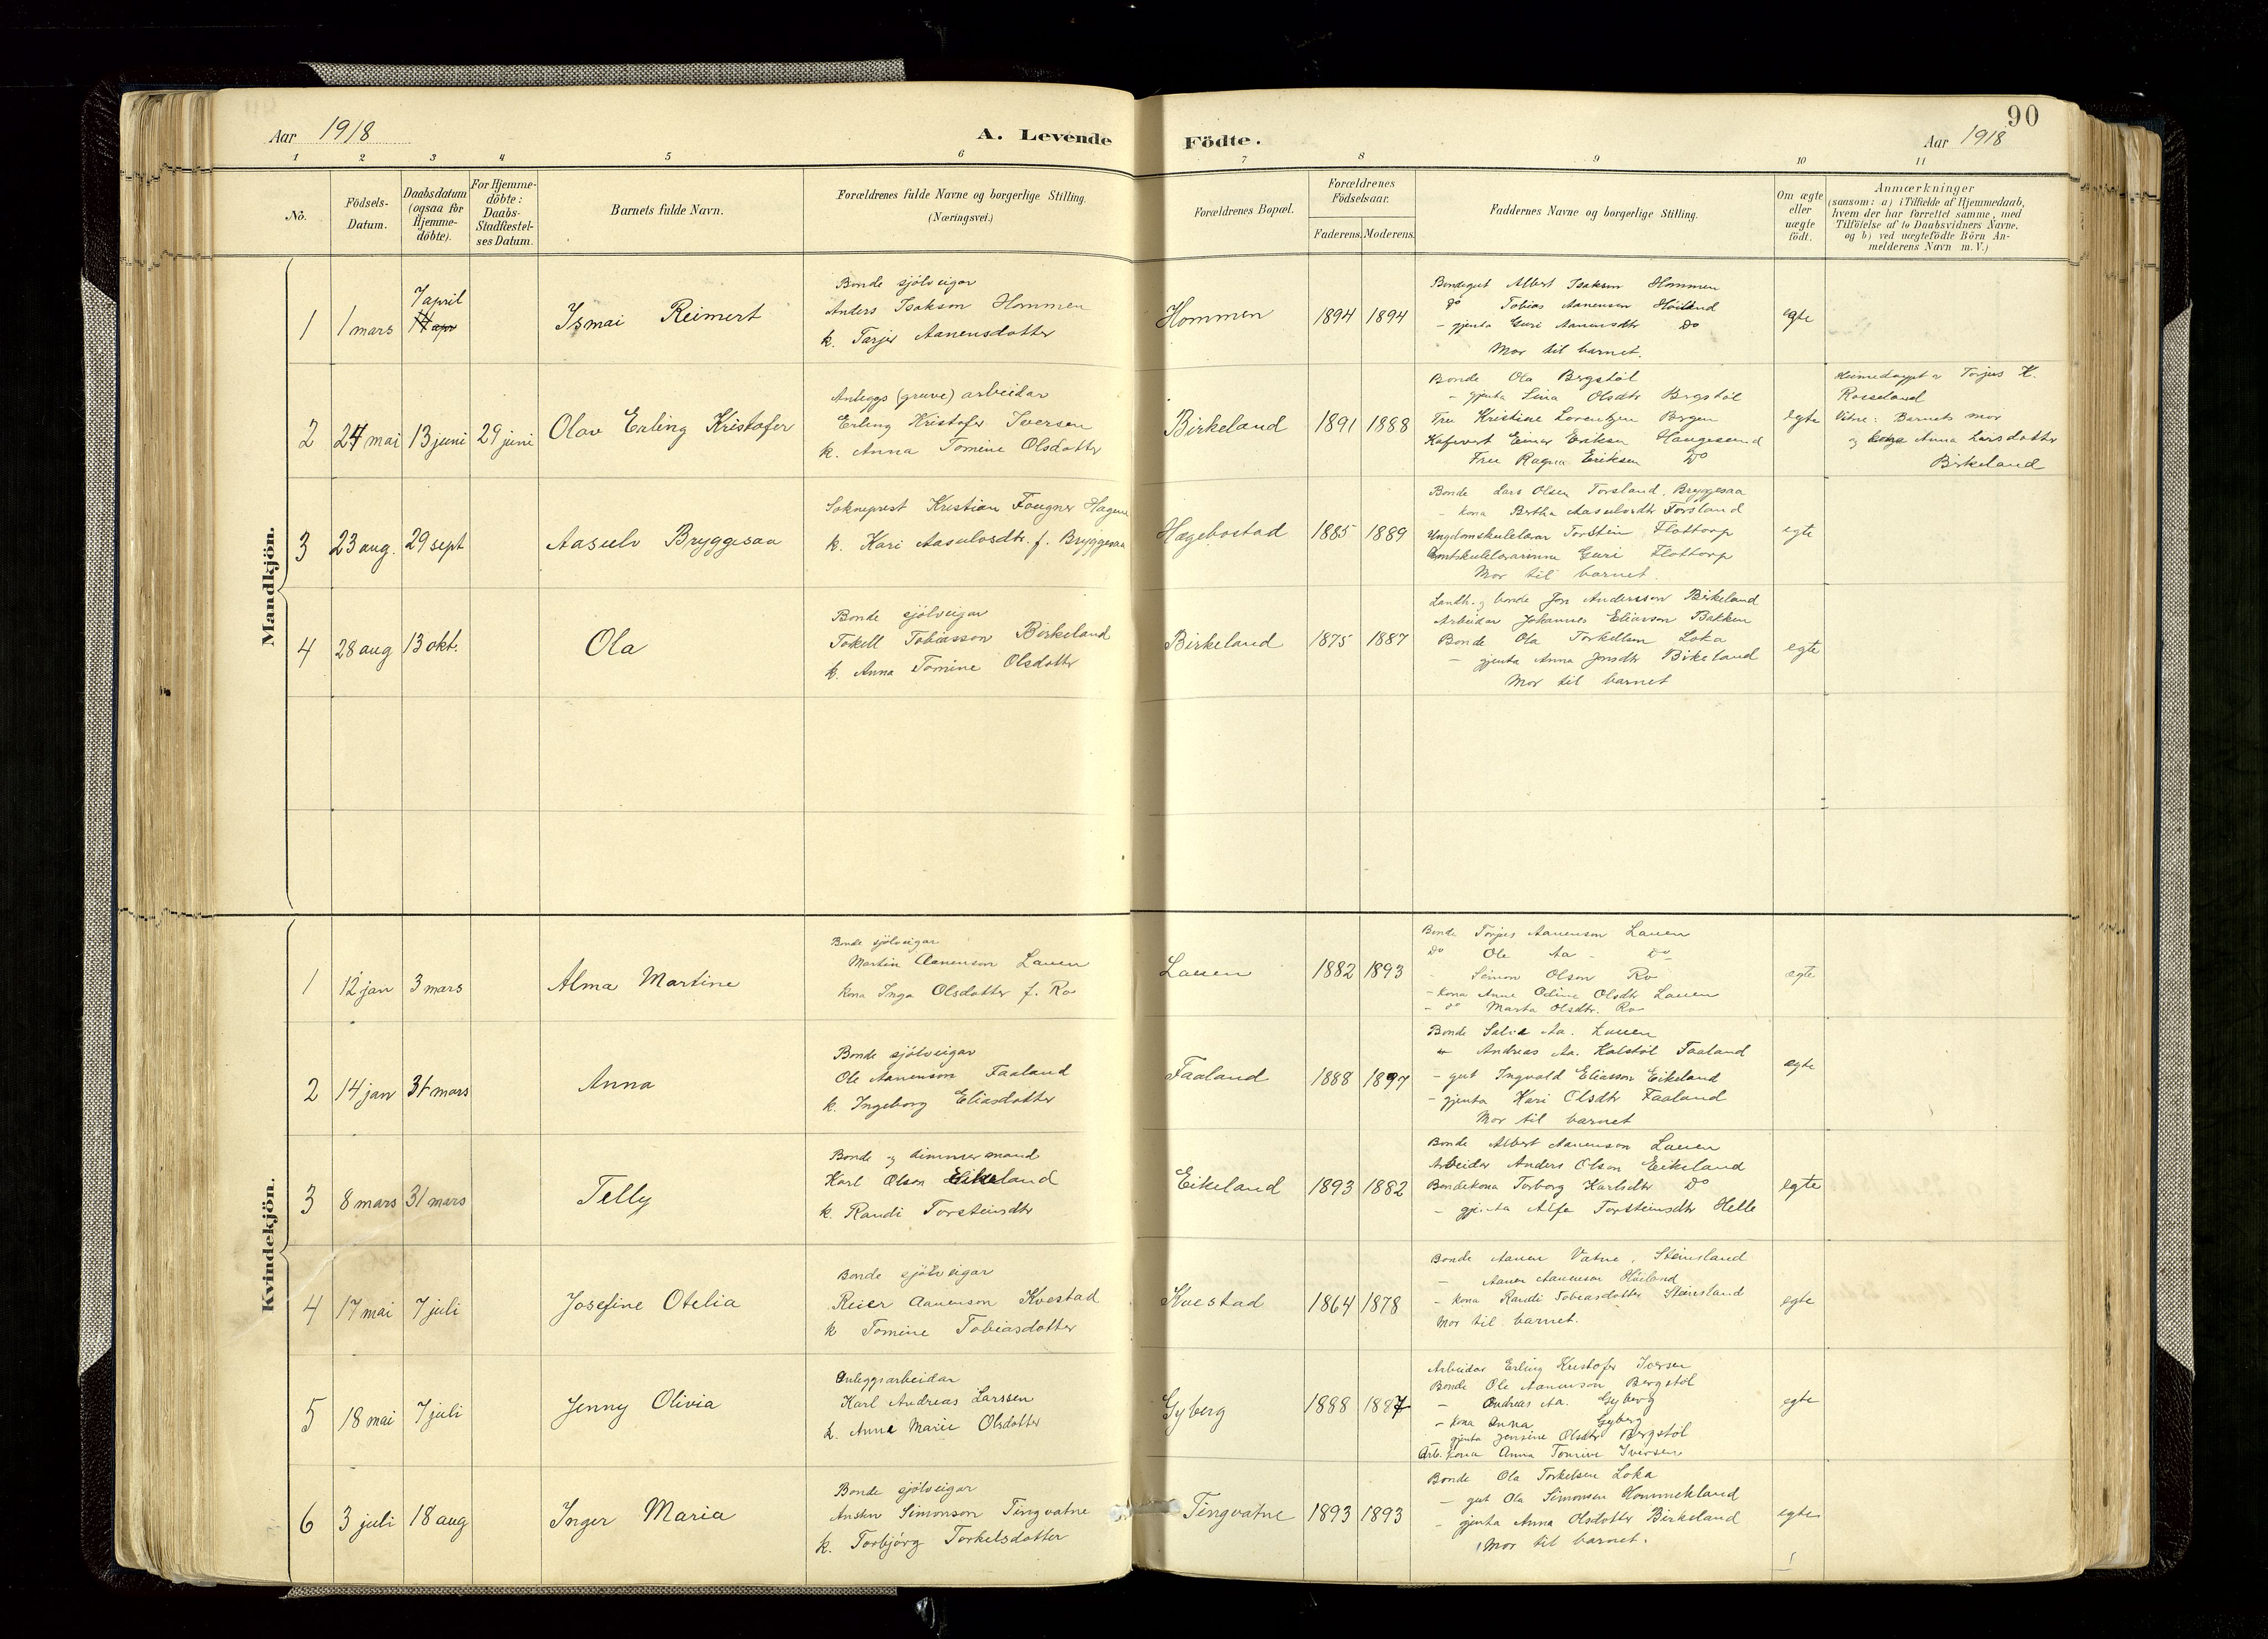 90
Aar 1918
A. Levende Födte.
Aar 1918
1 2 3 4 5 6 7 8 9 10 11
No.
Födsels-Datum.
Daabsdatum (ogsaa for Hjemme-döbte).
For Hjemme-döbte: Daabs-Stadfæstel-ses Datum.
Barnets fulde Navn.
Forældrenes fulde Navne og borgerlige Stilling. (Næringsvei.)
Forældrenes Bopæl.
Forældrenes Födselsaar.
Faderens. Moderens.
Faddernes Navne og borgerlige Stilling.
Om ægte eller uægte födt.
Anmærkninger
(saasom: a) i Tilfælde af Hjemmedaab,
hvem der har forrettet samme, med
Tilföielse af to Daabsvidners Navne.
og b) ved uægtefödte Börn An-
melderens Navn m. V.)
Mandkjön.
1 1 mars 7 april 14 apr Ismai Reimert
Bonde sjölveigar
Anders Isakson Hommen
k. Tarjer Aanensdotter
Hommen 1894 1894
Bondegut Albert Isakson Hommen
Do Tobias Aanenson Höiland
- gjenta Guri Aanensdtr Do
Mor til barnet.
egte
2 24 mai 13 juni 29 juni Olav Erling Kristofer
Anleggs (gruve) arbeidar
Erling Kristofer Iversen
k. Anna Tomine Olsdotter
Birkeland 1891 1888
Bonde Ola Bergstöl
- gjenta Lina Olsdtr Bergstöl
Fru Kristine Lorentzen Bergen
Einar Eriksen Haugesund
Fru Ragna Eriksen Do
egte
Heimedøypt a Torjus K.
Rosseland
Vitne: Barnets mor
og kona Anna Larsdotter
Birkeland
3 23 aug. 29 sept Aasulv Bryggesaa
Sokneprest Kristian Fougner Hagen
k. Kari Aasulvsdtr. f. Bryggesaa
Hægebostad 1885 1889
Bonde Lars Olsen Forsland, Bryggesaa
- kona Bertha Aasulvsdtr Forsland
Ungdomskulelærar Torstein Flottorp
Amtskulelærarinna Guri Flottorp
Mor til barnet.
egte
4 28 aug 13 okt. Ola
Bonde sjölveigar
Tokell Tobiasson Birkeland
k. Anna Tomine Olsdotter
Birkeland 1875 1887
Landh. og bonde Jon Andersson Birkeland
Arbeidar Johannes Eliasson Bakken
Bonde Ola Torkellsen Loka
- gjenta Anna Jonsdtr Birkeland
Mor til barnet
egte
Kvindekjön.
1 12 jan 3 mars Alma Martine
Bonde sjölveigar
Martin Aanenson Lauen
kona Inga Olsdotter f. Ro
Lauen 1882 1893
Bonde Torjus Aanenson Lauen
Do Ole Aa - Do
- Simon Olson Ro
- kona Anne Odine Olsdtr Lauen
- do Marta Olsdtr. Ro
egte
2 14 jan 31 mars Anna
Bonde sjölveigar
Ole Aanenson Faaland
k. Ingeborg Eliasdotter
Faaland 1888 1897
Bonde Salve Aa. Lauen
Andreas Aa. Kalstöl Faaland
- gut Ingvald Eliasson Eikeland
- gjenta Kari Olsdtr Faaland
Mor til barnet
egte
3 8 mars 31 mars Telly
Bonde og timmermand
Karl Olson Eikeland
k. Randi Torsteinsdtr
Eikeland 1893 1882
Bonde Albert Aanenson Lauen
Arbeidar Anders Olson Eikeland
Bondekona Torborg Karlsdtr Do
- gjenta Alfa Torsteinsdtr Helle
egte
4 17 mai 7 juli Josefine Otelia
Bonde sjölveigar
Reier Aanenson Kvestad
k Tomine Tobiasdotter
Kvestad 1864 1878
Bonde Aanen Vatne, Steinsland
- Aanen Aanenson Höiland
- kona Randi Tobiasdotter Steinsland
Mor til barnet.
egte
5 18 mai 7 juli Jenny Olivia
Anleggsarbeidar
Karl Andreas Larssen
k. Anna Marie Olsdotter
Gyberg 1888 1887
Arbeidar Erling Kristofer Iversen
Bonde Ole Aanenson Bergstöl
- Andreas Aa. Gyberg
- kona Anna Gyberg
gjenta Jensine Olsdtr Bergstöl
Arb. kona Anna Tomine Iversen
egte
6 3 juli 18 aug Inger Maria
Bonde sjölveigar
Ansten Simonson Tingvatne
k. Torbjörg Torkelsdotter
Tingvatne 1893 1893
Bonde Ola Torkelsen Loka
- gut Ola Simonsen Hommekland
- gjenta Anna Olsdotter Birkeland
Mor til barnet.
egte